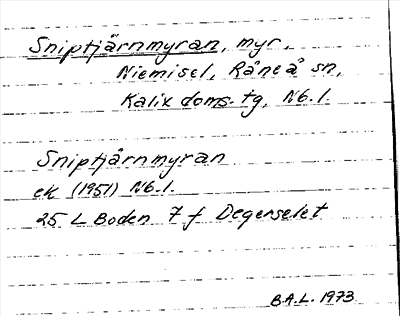 Sniptjärnmyran, myr,
Niemisel, Råneå sn,
Kalix doms. tg, Nb. l.
Sniptjärnmyran
ek (1951) Nb. l.
25 L Boden 7 f Degerselet
B.A.L. 1973